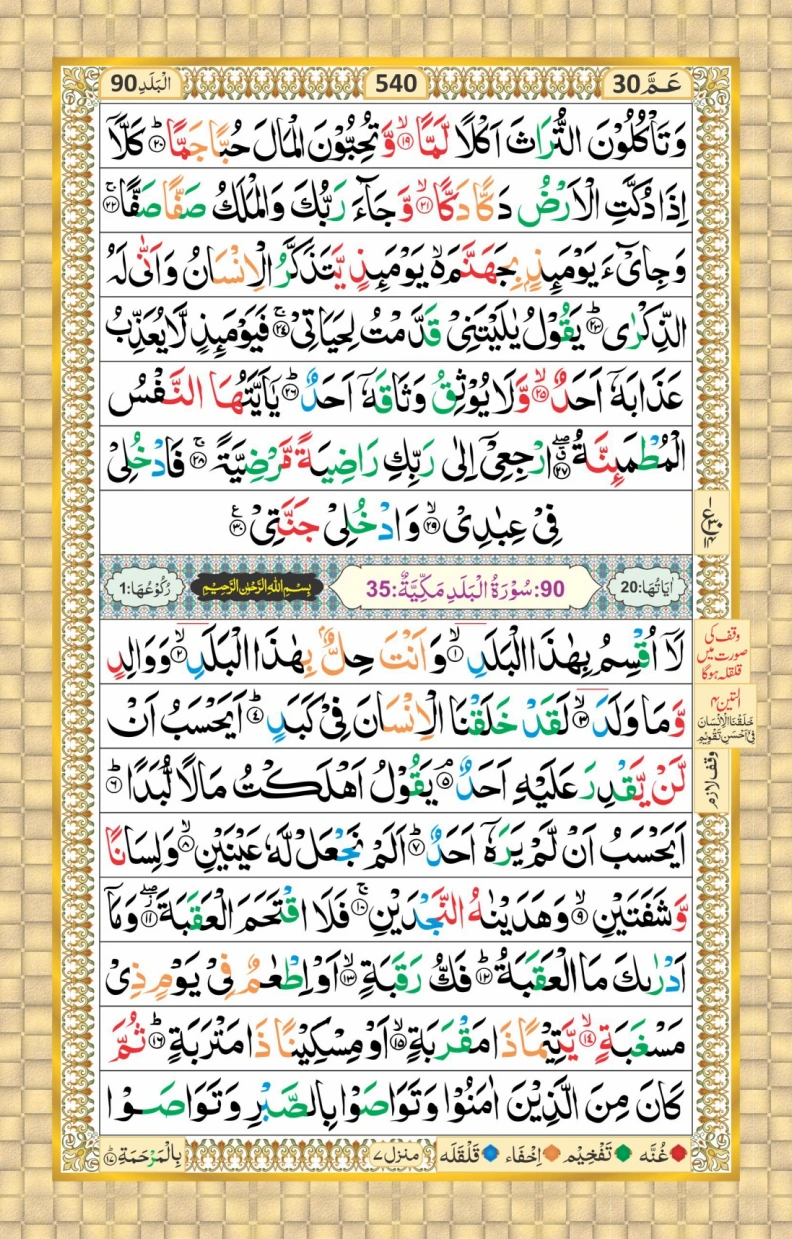 عَمَّ 30
540
الْبَلَد 90
وَتَاْكُلُوْنَ التُّرَاثَ اَكْلًا لَّمًّا ۙ﴿۱۹﴾ وَّتُحِبُّوْنَ الْمَالَ حُبًّا جَمًّا ؕ﴿۲۰﴾ كَلَّاۤ
اِذَا دُكَّتِ الْاَرْضُ دَكًّا دَكًّا ۙ﴿۲۱﴾ وَّجَآءَ رَبُّكَ وَالْمَلَكُ صَفًّا صَفًّا ۚ﴿۲۲﴾
وَجِایْٓءَ يَوْمَىِٕذٍۭ بِجَهَنَّمَ ۙ۬ يَوْمَىِٕذٍ يَّتَذَكَّرُ الْاِنْسَانُ وَاَنّٰى لَهُ
الذِّكْرٰى ؕ﴿۲۳﴾ يَقُوْلُ يٰلَيْتَنِیْ قَدَّمْتُ لِحَيَاتِیْ ۚ﴿۲۴﴾ فَيَوْمَىِٕذٍ لَّا يُعَذِّبُ
عَذَابَهٗۤ اَحَدٌ ۙ﴿۲۵﴾ وَّلَا يُوْثِقُ وَثَاقَهٗۤ اَحَدٌ ؕ﴿۲۶﴾ يٰۤاَيَّتُهَا النَّفْسُ
الْمُطْمَىِٕنَّةُ ۗۖ﴿۲۷﴾ ارْجِعِیْۤ اِلٰى رَبِّكِ رَاضِيَةً مَّرْضِيَّةً ۚ﴿۲۸﴾ فَادْخُلِیْ
فِیْ عِبٰدِیْ ۙ﴿۲۹﴾ وَادْخُلِیْ جَنَّتِیْ ﴿۳۰﴾
ع
اٰيَاتُهَا:20
90: سُوْرَةُ الْبَلَدِ مَكِّيَّةٌ :35
بِسْمِ اللهِ الرَّحْمٰنِ الرَّحِيْمِ
رُكُوْعُهَا:1
لَاۤ اُقْسِمُ بِهٰذَا الْبَلَدِ ۙ﴿۱﴾ وَاَنْتَ حِلٌّۢ بِهٰذَا الْبَلَدِ ۙ﴿۲﴾ وَوَالِدٍ
وَّمَا وَلَدَ ۙ﴿۳﴾ لَقَدْ خَلَقْنَا الْاِنْسَانَ فِیْ كَبَدٍ ؕ﴿۴﴾ اَيَحْسَبُ اَنْ
لَّنْ يَّقْدِرَ عَلَيْهِ اَحَدٌ ۘ﴿۵﴾ يَقُوْلُ اَهْلَكْتُ مَالًا لُّبَدًا ؕ﴿۶﴾
اَيَحْسَبُ اَنْ لَّمْ يَرَهٗۤ اَحَدٌ ؕ﴿۷﴾ اَلَمْ نَجْعَلْ لَّهٗ عَيْنَيْنِ ۙ﴿۸﴾ وَلِسَانًا
وَّشَفَتَيْنِ ۙ﴿۹﴾ وَهَدَيْنٰهُ النَّجْدَيْنِ ۚ﴿۱۰﴾ فَلَا اقْتَحَمَ الْعَقَبَةَ ۖ﴿۱۱﴾ وَمَاۤ
اَدْرٰىكَ مَا الْعَقَبَةُ ؕ﴿۱۲﴾ فَكُّ رَقَبَةٍ ۙ﴿۱۳﴾ اَوْ اِطْعٰمٌ فِیْ يَوْمٍ ذِیْ
مَسْغَبَةٍ ۙ﴿۱۴﴾ يَّتِيْمًا ذَا مَقْرَبَةٍ ۙ﴿۱۵﴾ اَوْ مِسْكِيْنًا ذَا مَتْرَبَةٍ ؕ﴿۱۶﴾ ثُمَّ
كَانَ مِنَ الَّذِيْنَ اٰمَنُوْا وَتَوَاصَوْا بِالصَّبْرِ وَتَوَاصَوْا
وقف کی
صورت میں
قلقلہ ہوگا
التین ۴
خَلَقْنَا الْاِنْسَانَ
فِیْۤ اَحْسَنِ تَقْوِيْمٍ
وقف لازم
غُنَّه تَفْخِيْم اِخْفَاء قَلْقَلَه
منزل ۷
بِالْمَرْحَمَةِ ؕ﴿۱۷﴾